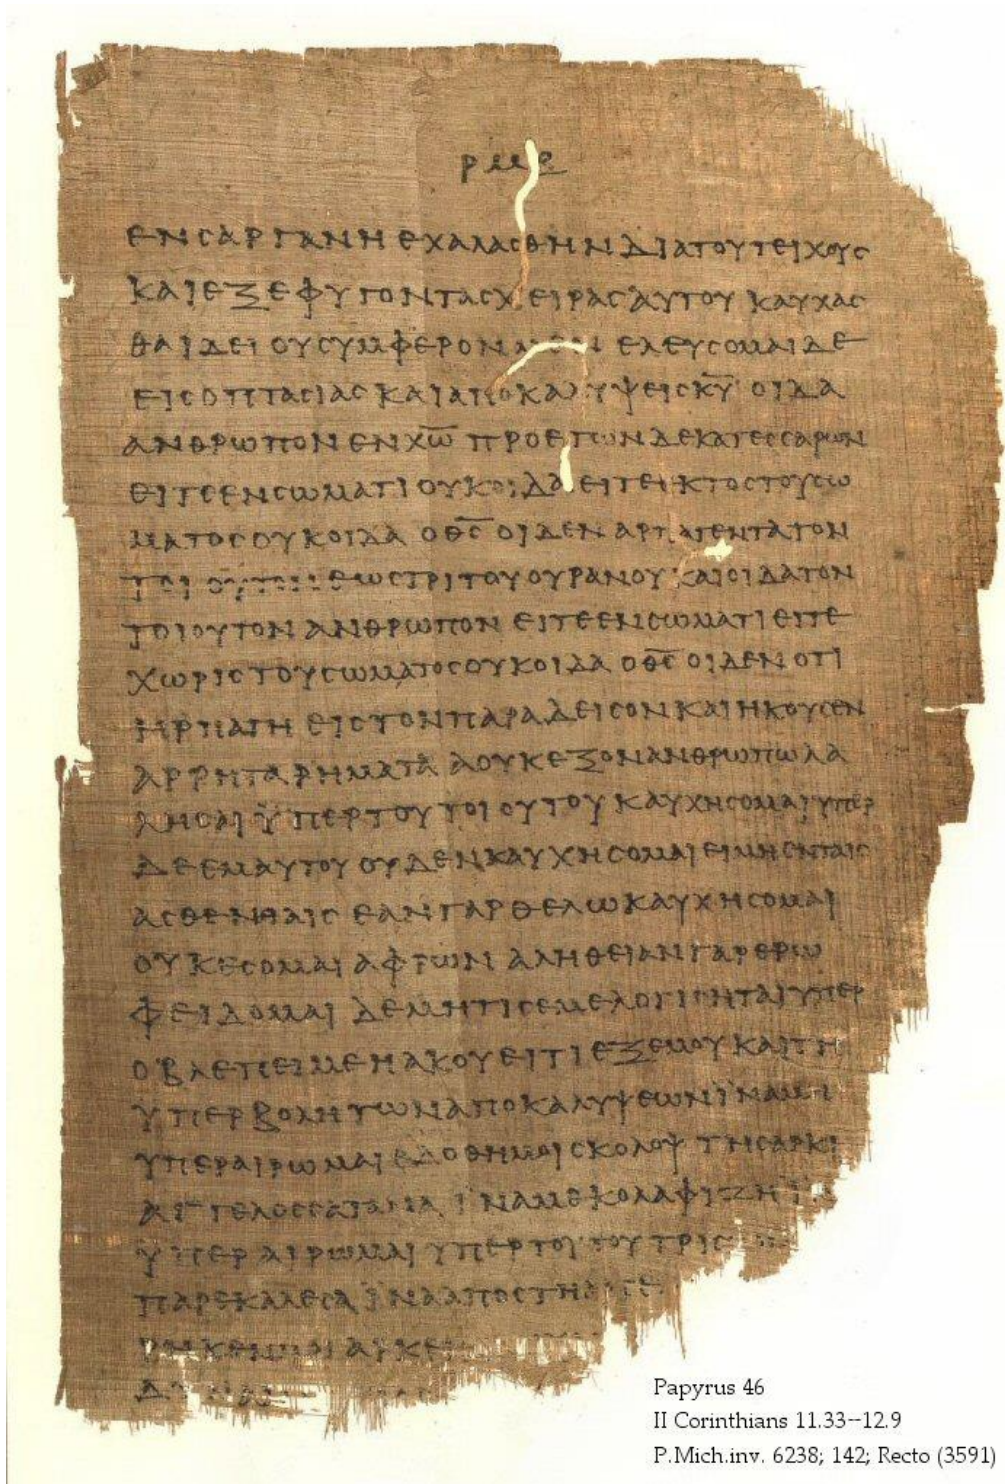 ΕΝ CΑΡΓΑΝΗ ΕΧΑΛΑCΘΗΝ ΔΙΑ ΤΟΥ ΤΕΙΧΟΥC
ΚΑΙ ΕΞΕΦΥΓΟΝ ΤΑC ΧΕΙΡΑC ΑΥΤΟΥ ΚΑΥΧΑC
ΘΑΙ ΔΕΙ ΟΥ CΥΜΦΕΡΟΝ ΕΛΕΥCΟΜΑΙ ΔΕ
ΕΙC ΟΠΤΑCΙΑC ΚΑΙ ΑΠΟΚΑΛΥΨΕΙC Κ̅Υ̅ ΟΙΔΑ
ΑΝΘΡΩΠΟΝ ΕΝ Χ̅Ω̅ ΠΡΟ ΕΤΩΝ ΔΕΚΑΤΕCCΑΡΩΝ
ΕΙΤΕ ΕΝ CΩΜΑΤΙ ΟΥΚ ΟΙΔΑ ΕΙΤΕ ΕΚΤΟC ΤΟΥ CΩ
ΜΑΤΟC ΟΥΚ ΟΙΔΑ Ο Θ̅C̅ ΟΙΔΕΝ ΑΡΠΑΓΕΝΤΑ ΤΟΝ
ΤΟΙΟΥΤΟΝ ΕΩC ΤΡΙΤΟΥ ΟΥΡΑΝΟΥ ΚΑΙ ΟΙΔΑ ΤΟΝ
ΤΟΙΟΥΤΟΝ ΑΝΘΡΩΠΟΝ ΕΙΤΕ ΕΝ CΩΜΑΤΙ ΕΙΤΕ
ΧΩΡΙC ΤΟΥ CΩΜΑΤΟC ΟΥΚ ΟΙΔΑ Ο Θ̅C̅ ΟΙΔΕΝ ΟΤΙ
ΗΡΠΑΓΗ ΕΙC ΤΟΝ ΠΑΡΑΔΕΙCΟΝ ΚΑΙ ΗΚΟΥCΕΝ
ΑΡΡΗΤΑ ΡΗΜΑΤΑ Α ΟΥΚ ΕΞΟΝ ΑΝΘΡΩΠΩ ΛΑ
ΛΗCΑΙ ΫΠΕΡ ΤΟΥ ΤΟΙΟΥΤΟΥ ΚΑΥΧΗCΟΜΑΙ ΥΠΕΡ
ΔΕ ΕΜΑΥΤΟΥ ΟΥΔΕΝ ΚΑΥΧΗCΟΜΑΙ ΕΙ ΜΗ ΕΝ ΤΑΙC
ΑCΘΕΝΕΙΑΙC ΕΑΝ ΓΑΡ ΘΕΛΩ ΚΑΥΧΗCΟΜΑΙ
ΟΥΚ ΕCΟΜΑΙ ΑΦΡΩΝ ΑΛΗΘΕΙΑΝ ΓΑΡ ΕΡΩ
ΦΕΙΔΟΜΑΙ ΔΕ ΜΗ ΤΙC ΕΜΕ ΛΟΓΙCΗΤΑΙ ΥΠΕΡ
Ο ΒΛΕΠΕΙ ΜΕ Η ΑΚΟΥΕΙ ΤΙ ΕΞ ΕΜΟΥ ΚΑΙ ΤΗ
ΥΠΕΡΒΟΛΗ ΤΩΝ ΑΠΟΚΑΛΥΨΕΩΝ ΪΝΑ ΜΗ
ΥΠΕΡΑΙΡΩΜΑΙ ΕΔΟΘΗ ΜΟΙ CΚΟΛΟΨ ΤΗ CΑΡΚΙ
ΑΓΓΕΛΟC CΑΤΑΝΑ ΪΝΑ ΜΕ ΚΟΛΑΦΙΖΗ
ΥΠΕΡΑΙΡΩΜΑΙ ΥΠΕΡ ΤΟΥΤΟΥ ΤΡΙC
ΠΑΡΕΚΑΛΕCΑ ΪΝΑ ΑΠΟCΤΗ
ΡΗΚΕΝ ΜΟΙ ΑΡΚΕΙ
Papyrus 46
II Corinthians 11.33--12.9
P.Mich.inv. 6238; 142; Recto (3591)